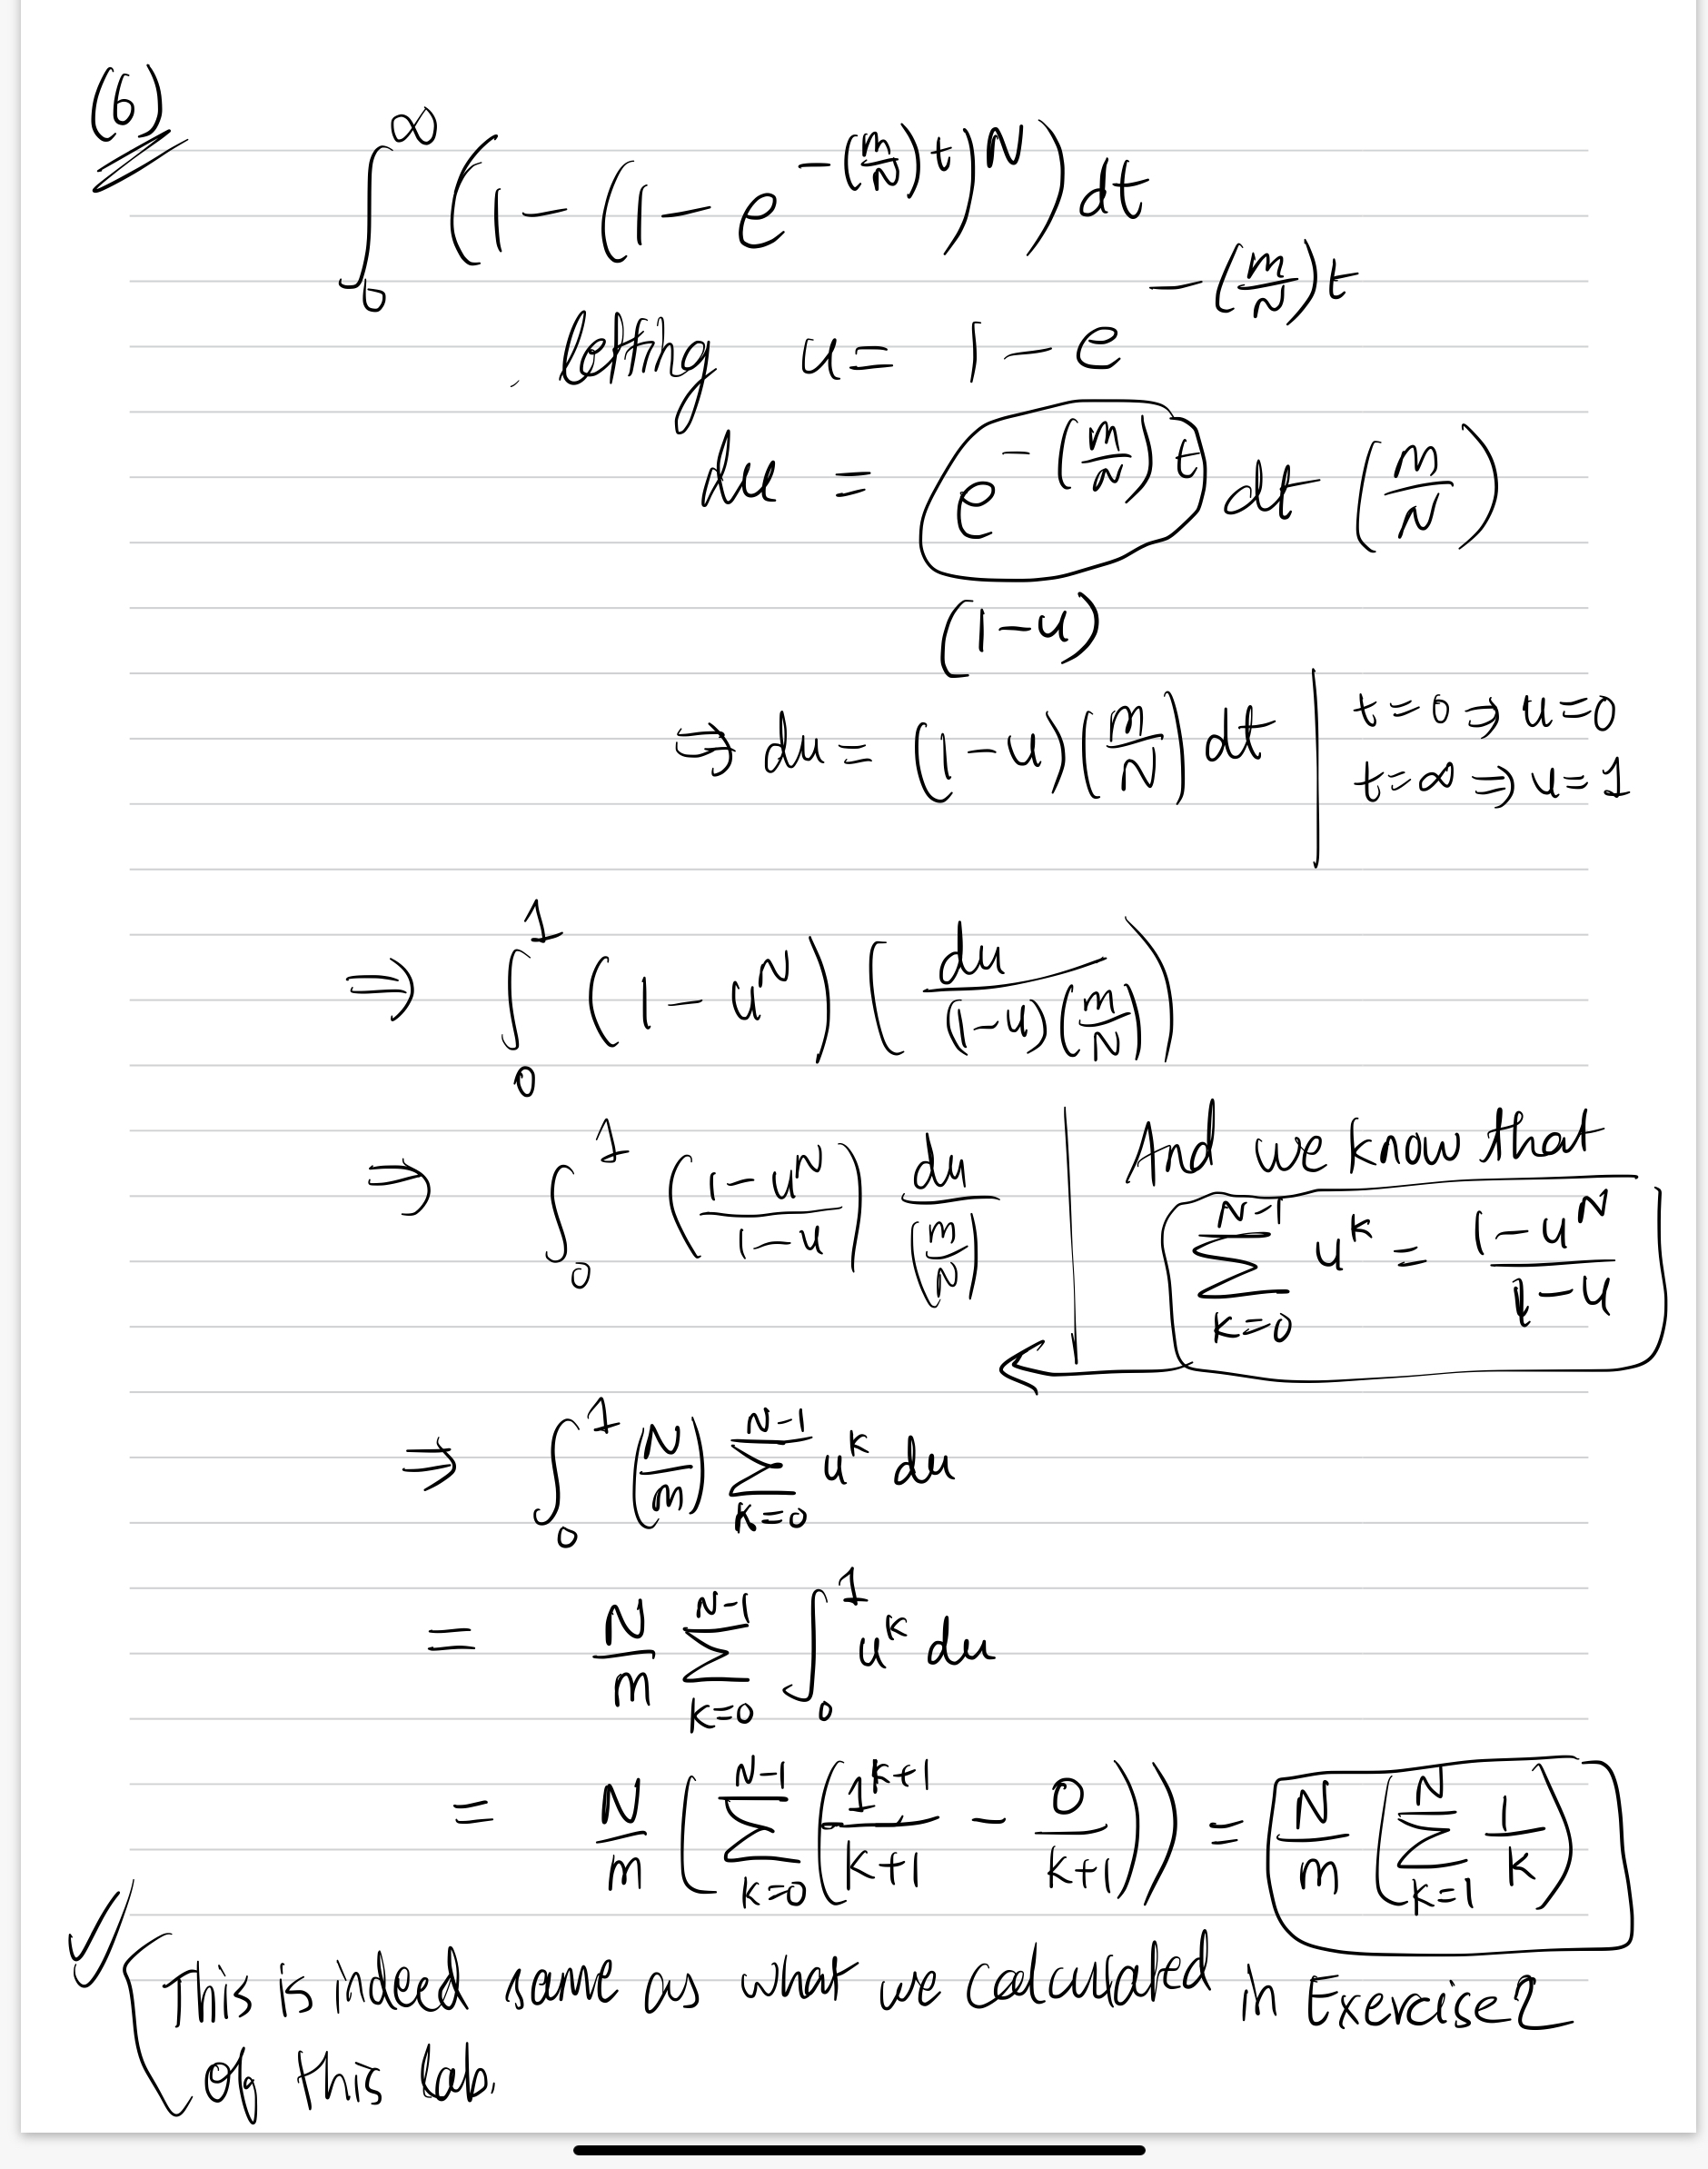 (6)
∫_0^∞ (1 − (1 − e^{−(m/N)t})^N) dt
letting u = 1 − e^{−(m/N)t}
du = e^{−(m/N)t} dt (m/N)
(1−u)
⇒ du = (1−u)(m/N) dt | t=0 ⇒ u=0
t=∞ ⇒ u=1
⇒ ∫_0^1 (1 − u^N) (du / ((1−u)(m/N)))
⇒ ∫_0^1 ((1−u^N)/(1−u)) du/(m/N) | And we know that
∑_{k=0}^{N−1} u^k = (1−u^N)/(1−u)
⇒ ∫_0^1 (N/m) ∑_{k=0}^{N−1} u^k du
= N/m ∑_{k=0}^{N−1} ∫_0^1 u^k du
= N/m (∑_{k=0}^{N−1} (1^{k+1}/(k+1) − 0/(k+1))) = N/m (∑_{k=1}^{N} 1/k)
This is indeed same as what we calculated in Exercise 2
of this lab.